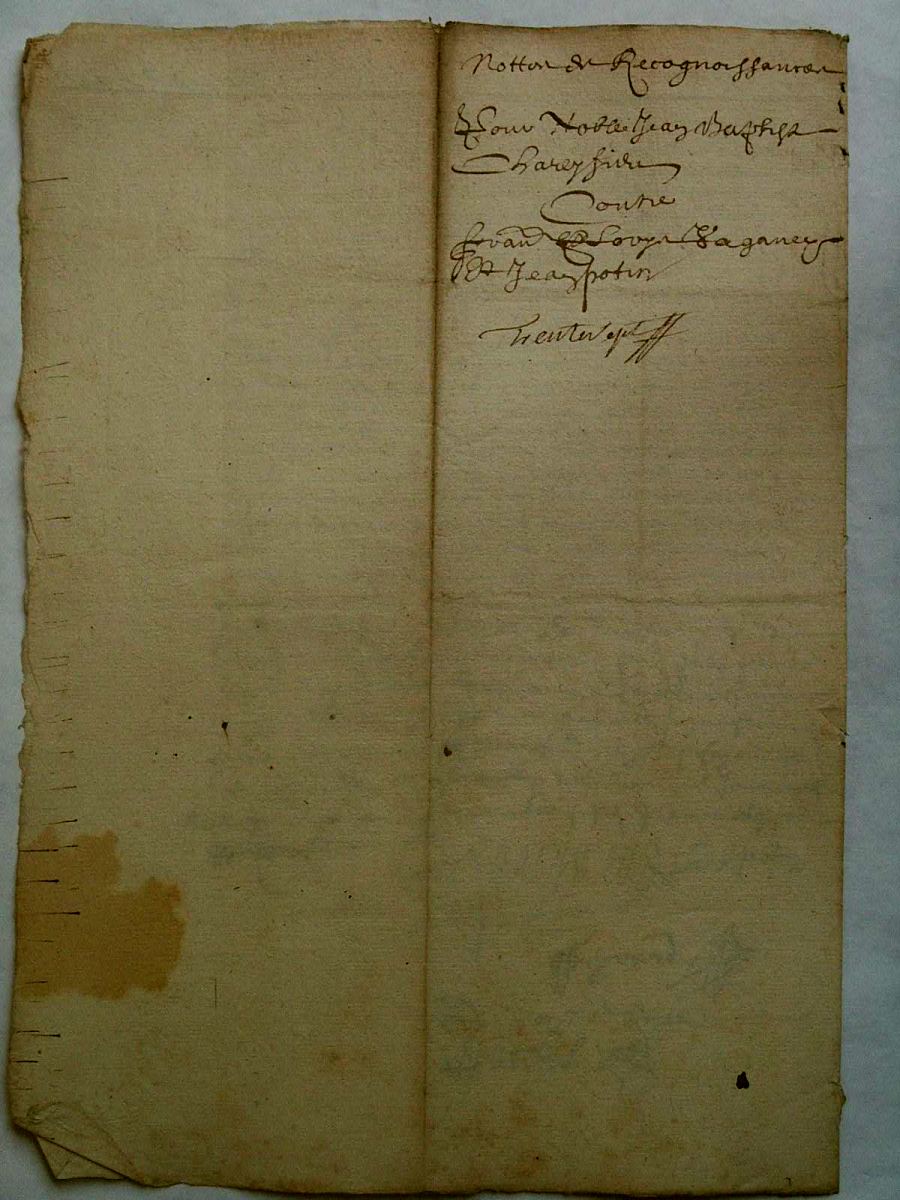 Notton de Recognoissances
Pour Noble Jean Baptiste
Chareysieu
Contre
Louys Paganey
Et Jean potin
Trente sept